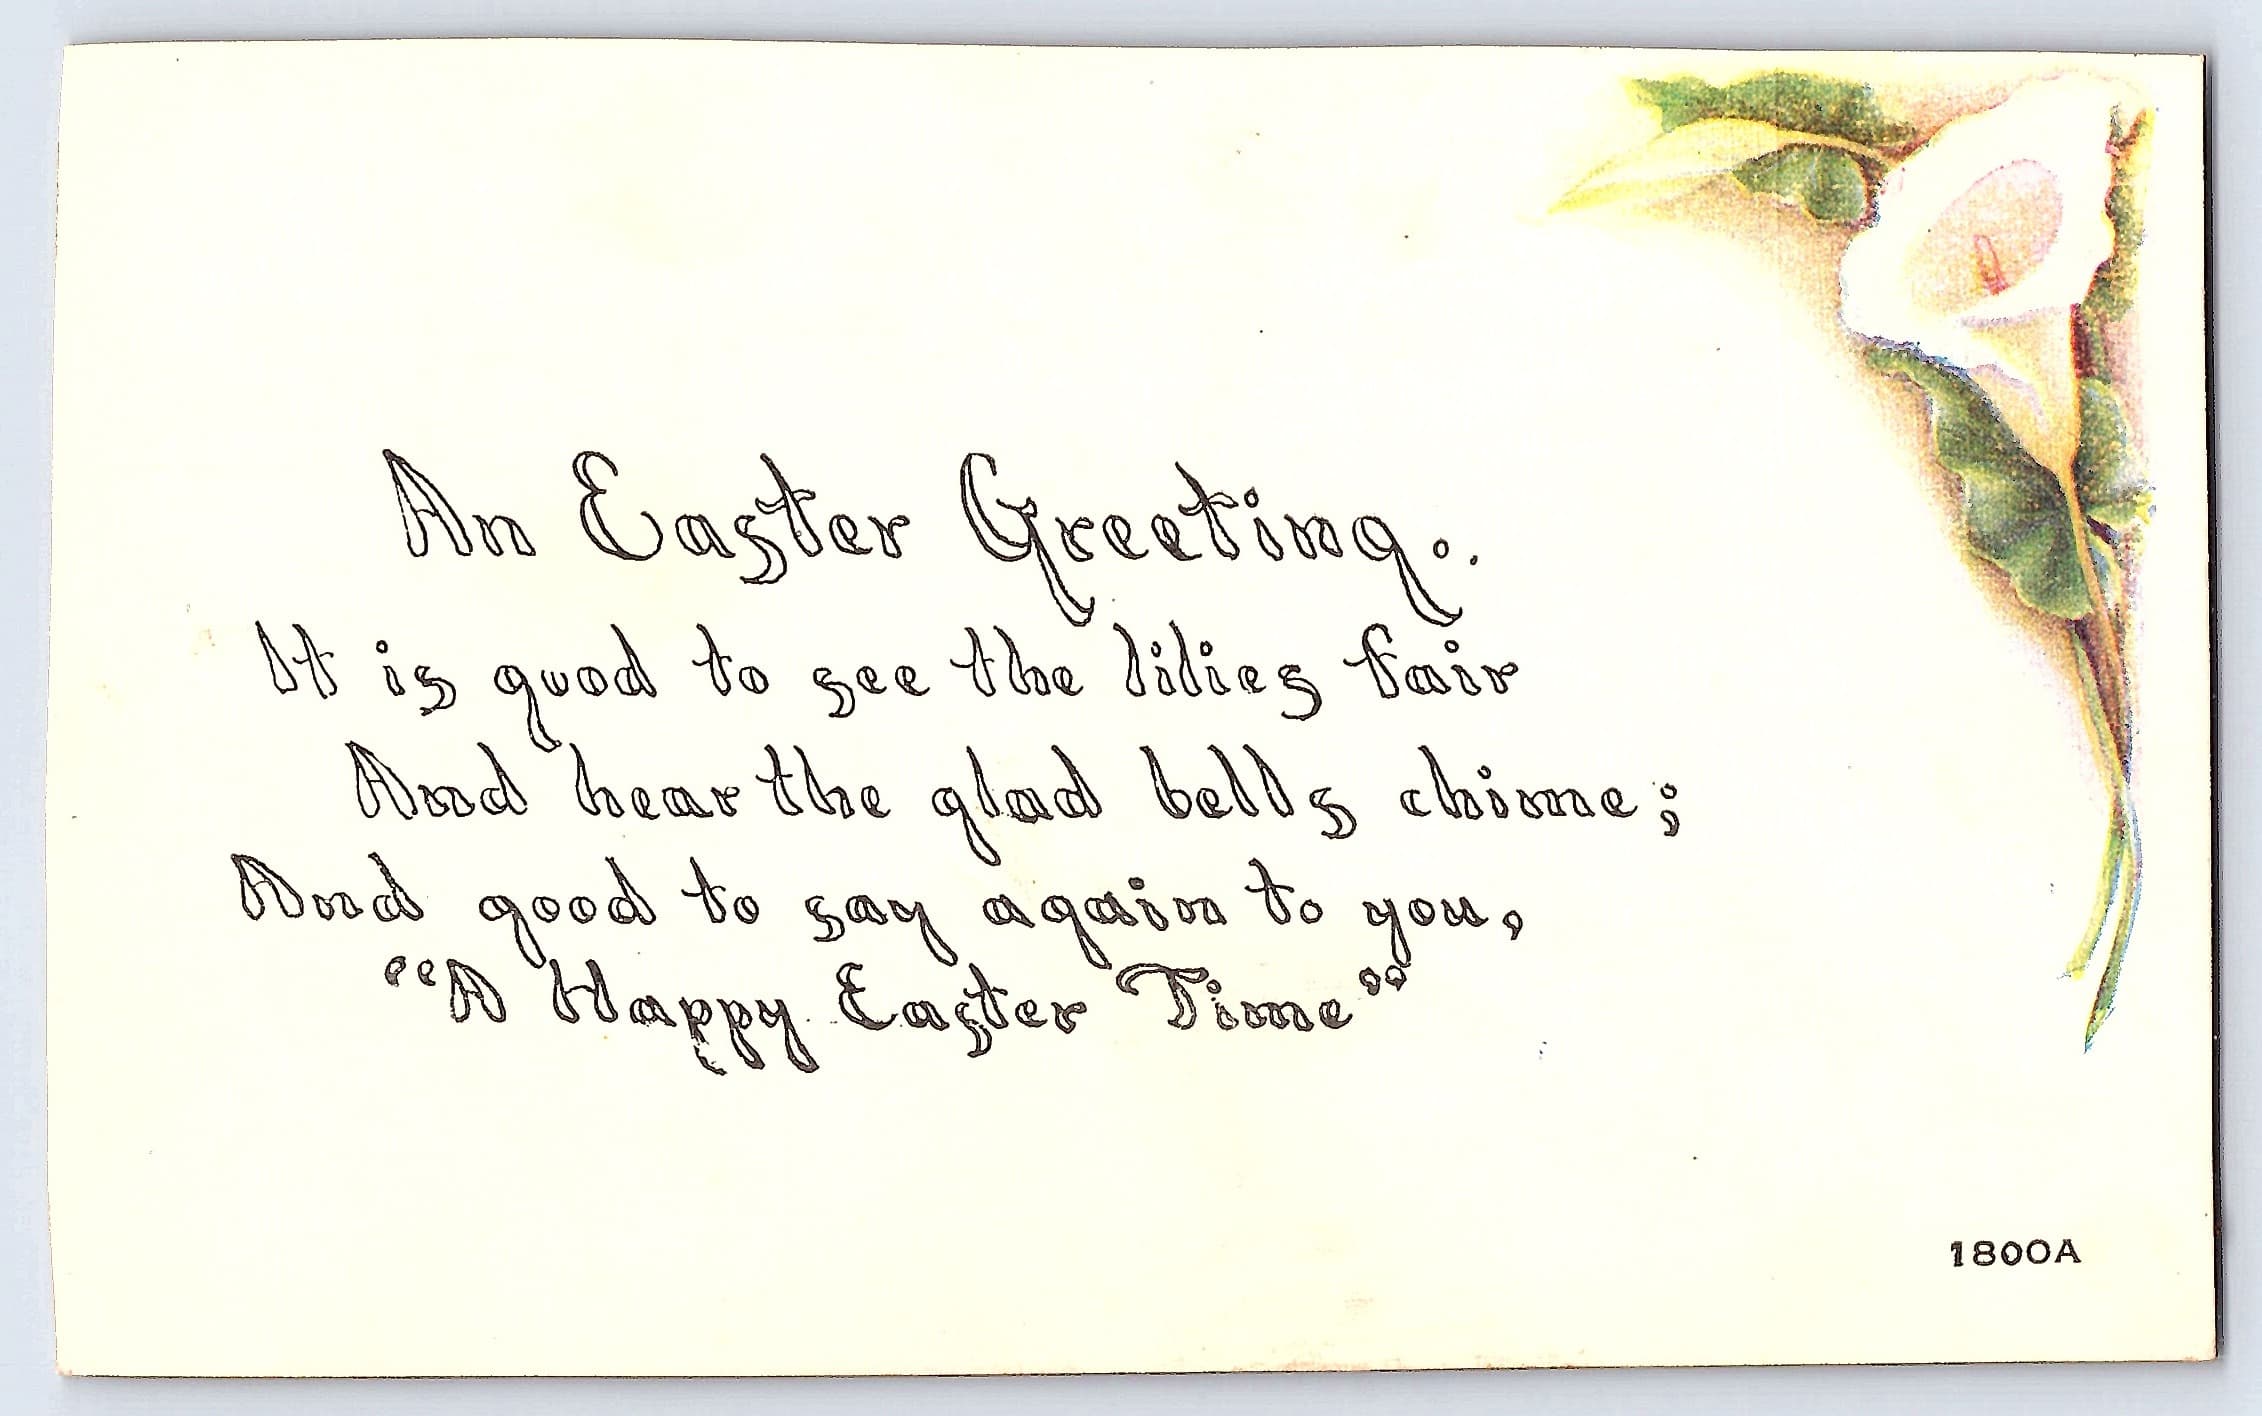 An Easter Greeting..
It is good to see the lilies fair
And hear the glad bells chime;
And good to say again to you,
"A Happy Easter Time"
1800A